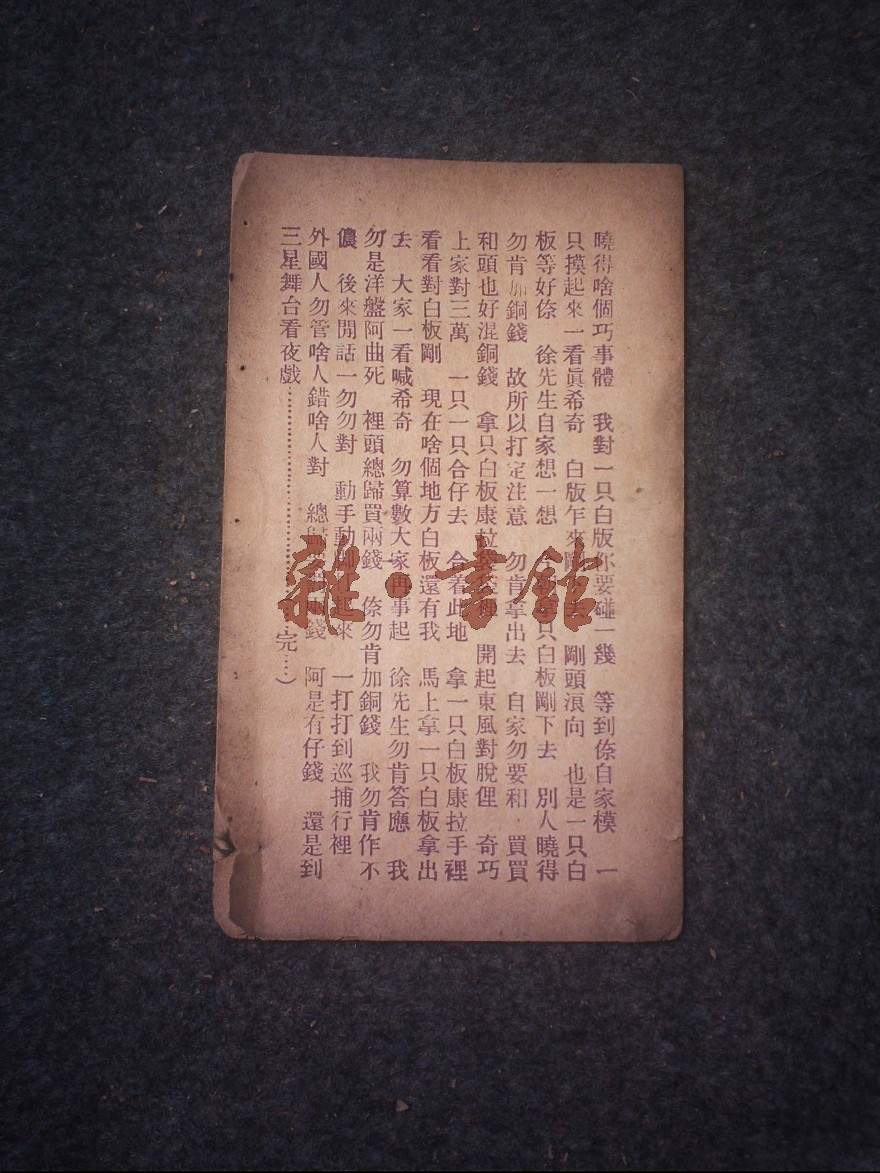 曉得啥個巧事體　我對一只白版你要碰一幾　等到倷自家模　一
只摸起來一看眞希奇　白版乍來剛　去　剛頭滾向　也是一只白
板等好倷　徐先生自家想一想　只白板剛下去　別人曉得
勿肯加銅錢　故所以打定注意　勿肯拿出去　自家勿要和　買買
和頭也好混銅錢　拿只白板康拉　開起東風對脫俚　奇巧
上家對三萬　一只一只合仔去　合着此地　拿一只白板康拉手裡
看看對白板剛　現在啥個地方白板還有我　馬上拿一只白板拿出
去　大家一看喊希奇　勿算數大家再事起　徐先生勿肯答應　我
勿是洋盤阿曲死　裡頭總歸買兩錢　倷勿肯加銅錢　我勿肯作不
儂　後來閒話一勿勿對　動手動脚　起來　一打打到巡捕行裡
外國人勿管啥人錯啥人對　總歸　錢　阿是有仔錢　還是到
三星舞台看夜戲……………………完…）
雜·書館